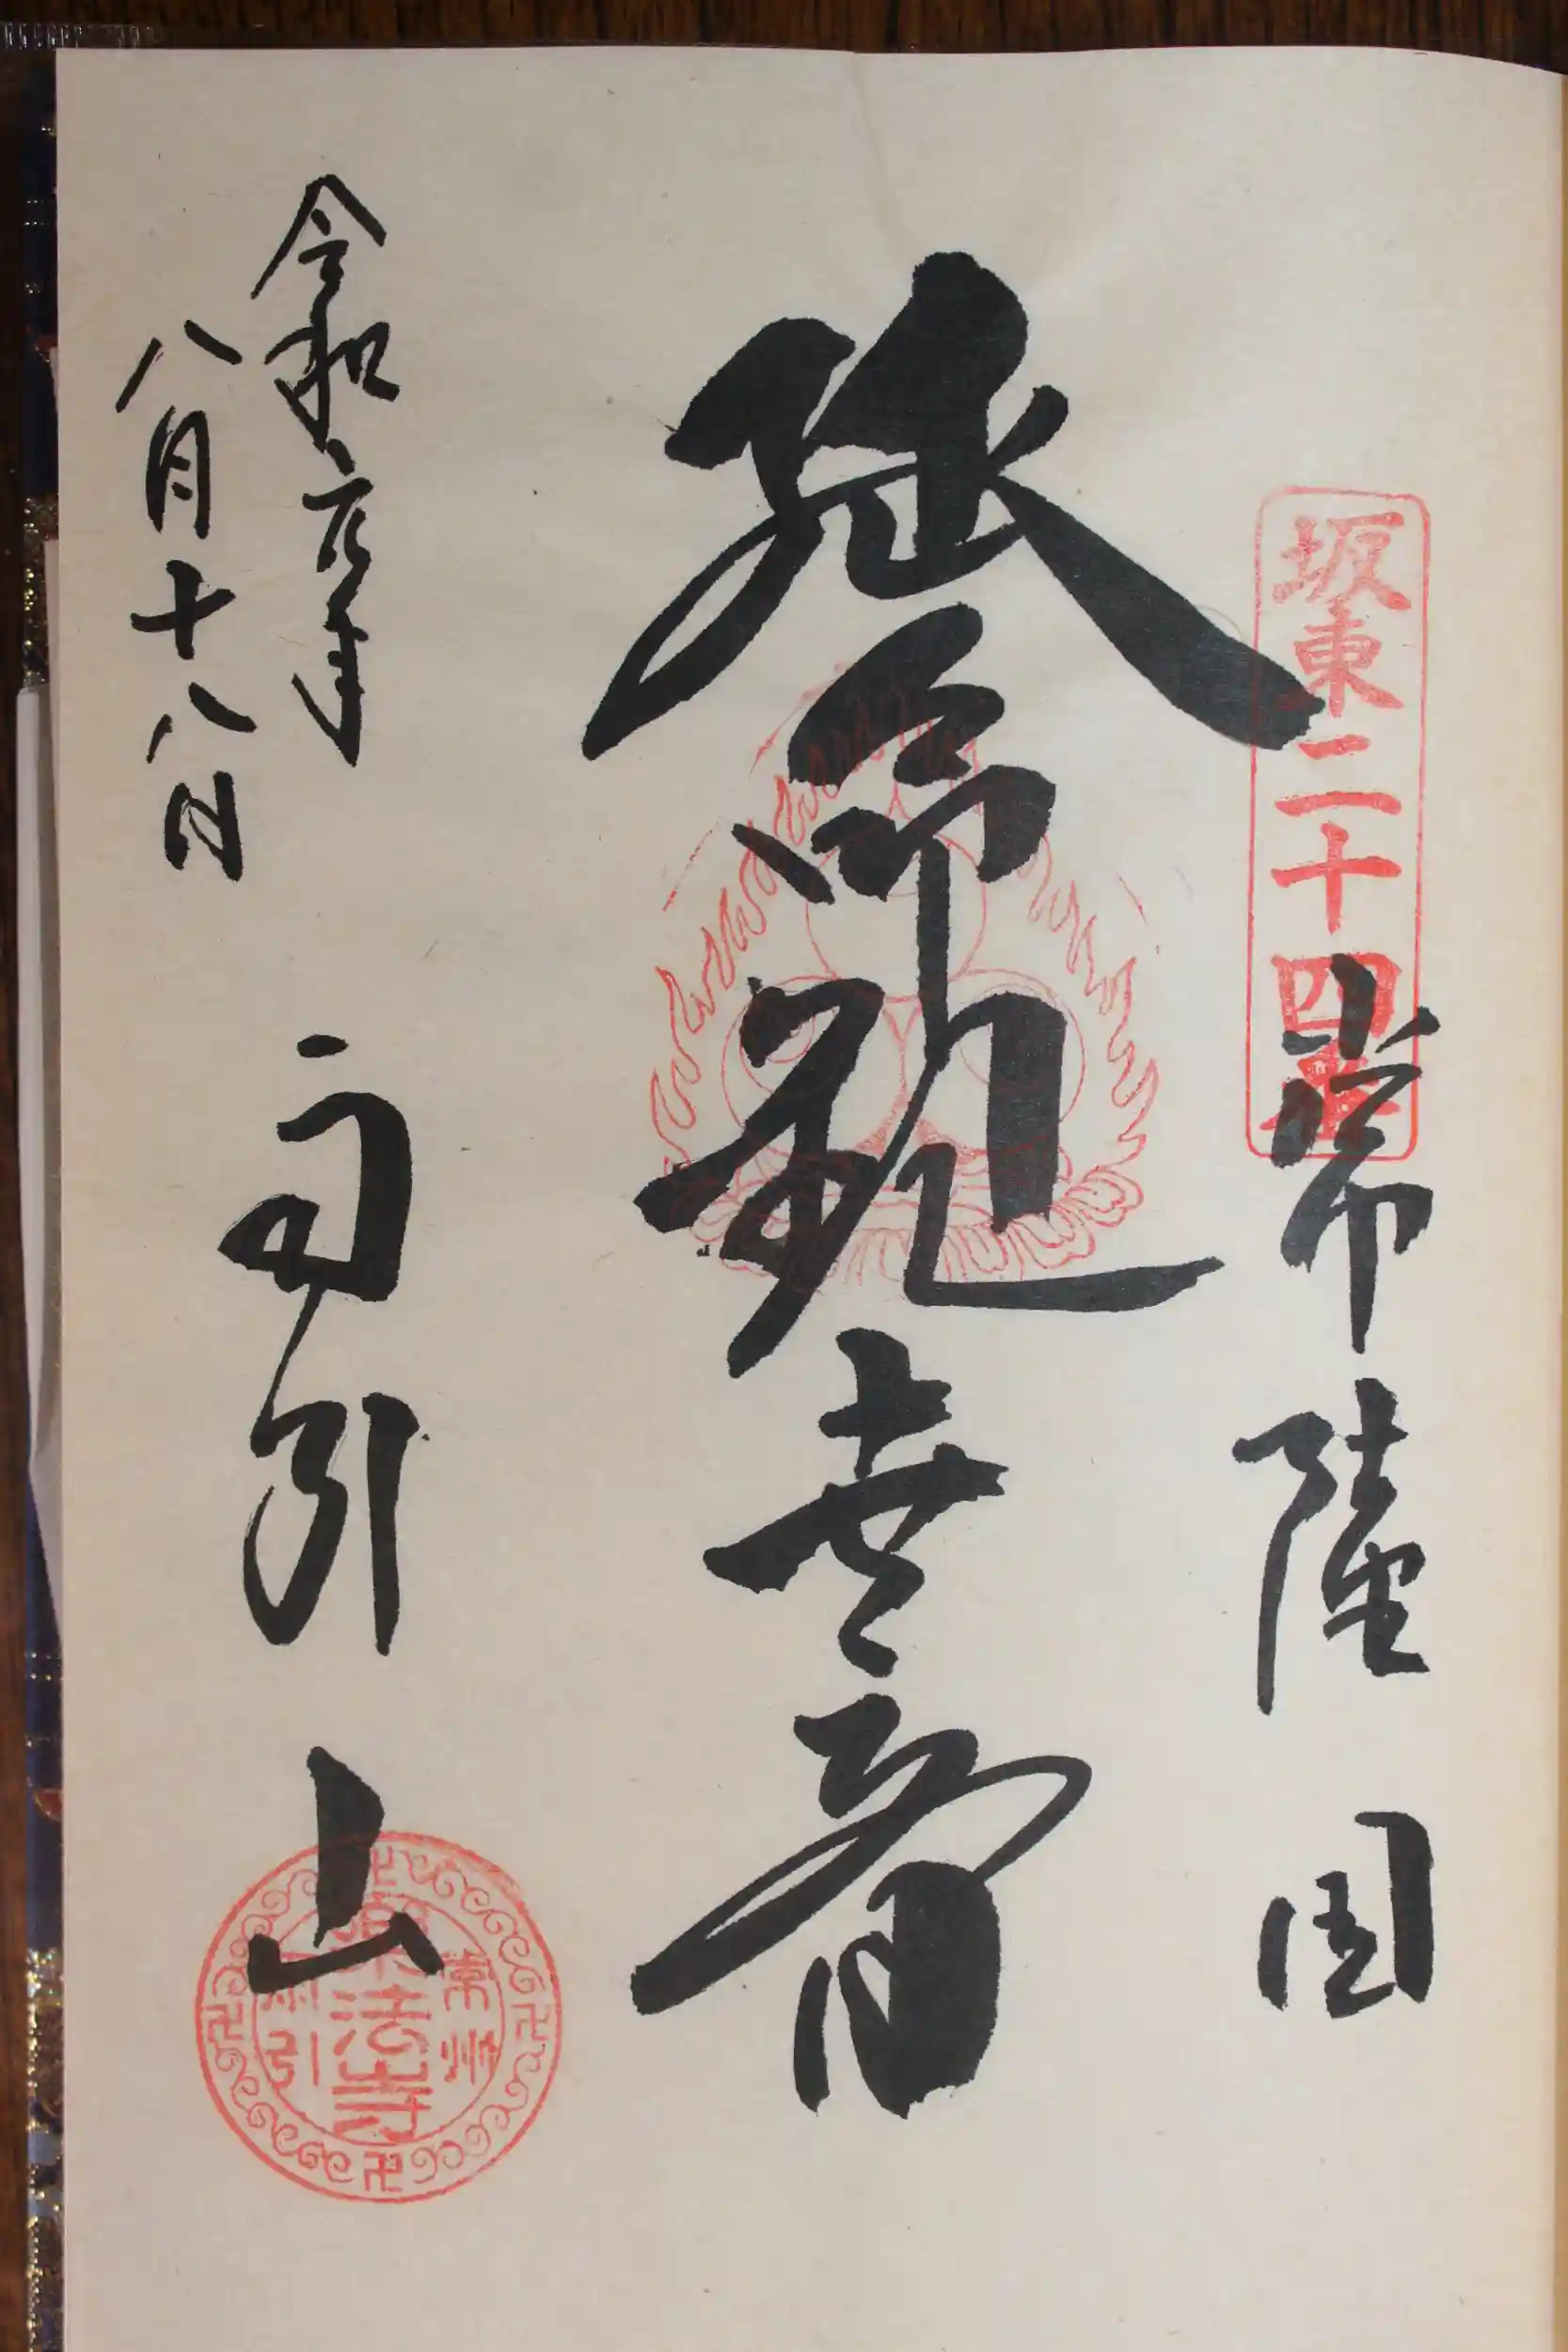 坂東二十四番
常陸国
延命観世音
令和元年
八月十八日
雨引山
常州
樂法寺
雨引